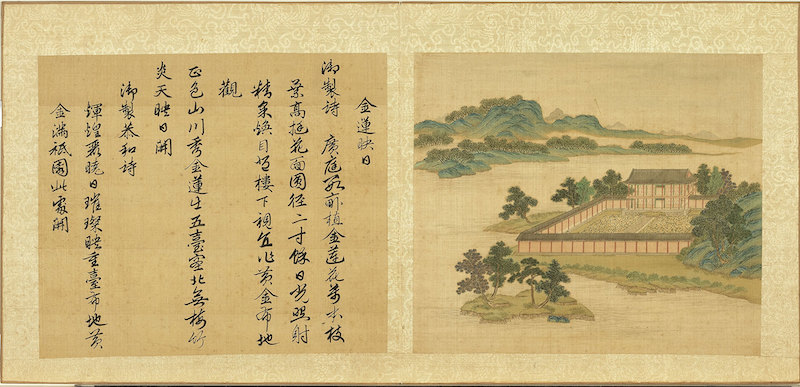 金蓮映日
御製詩 廣庭數畝植金蓮花萬本枝
葉高挺花面圓徑二寸餘日光照射
精采煥目登樓下視直作黃金布地
觀
正色山川秀金蓮出五臺塞北無梅竹
炎天映日開
御製恭和詩
輝煌麗曉日璀璨映重臺布地黃
金滿祇園此處開